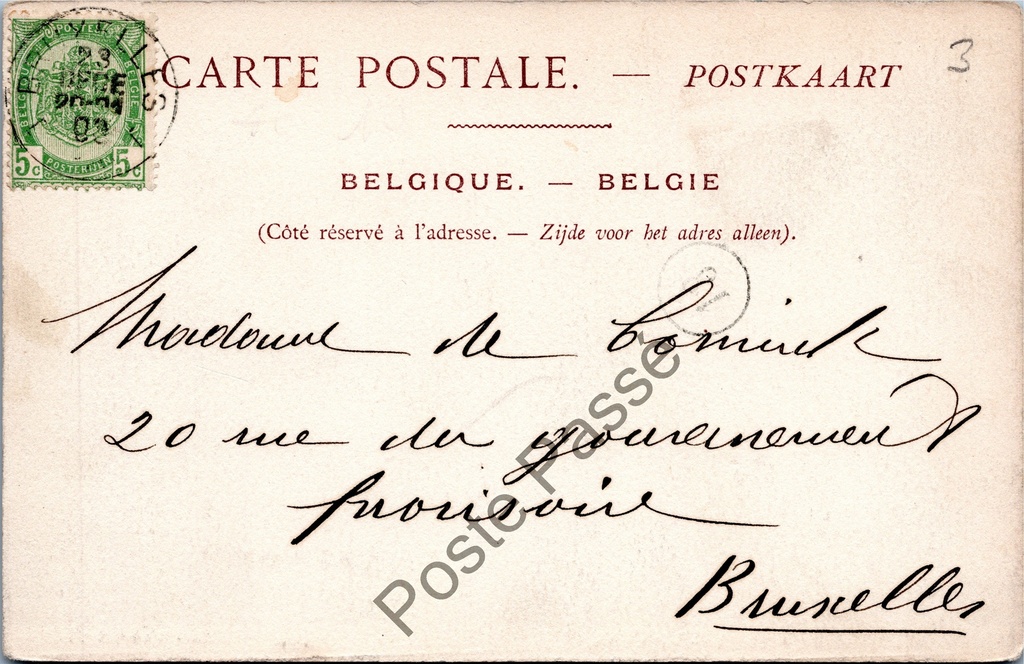 CARTE POSTALE. — POSTKAART
3
BELGIQUE. — BELGIE
(Côté réservé à l'adresse. — Zijde voor het adres alleen).
POSTES
BELGIQUE
BELGIË
5c POSTERIJEN 5c
23
02
Madame de
20 rue du gouvernement
provisoire
Bruxelles
Poste Passé